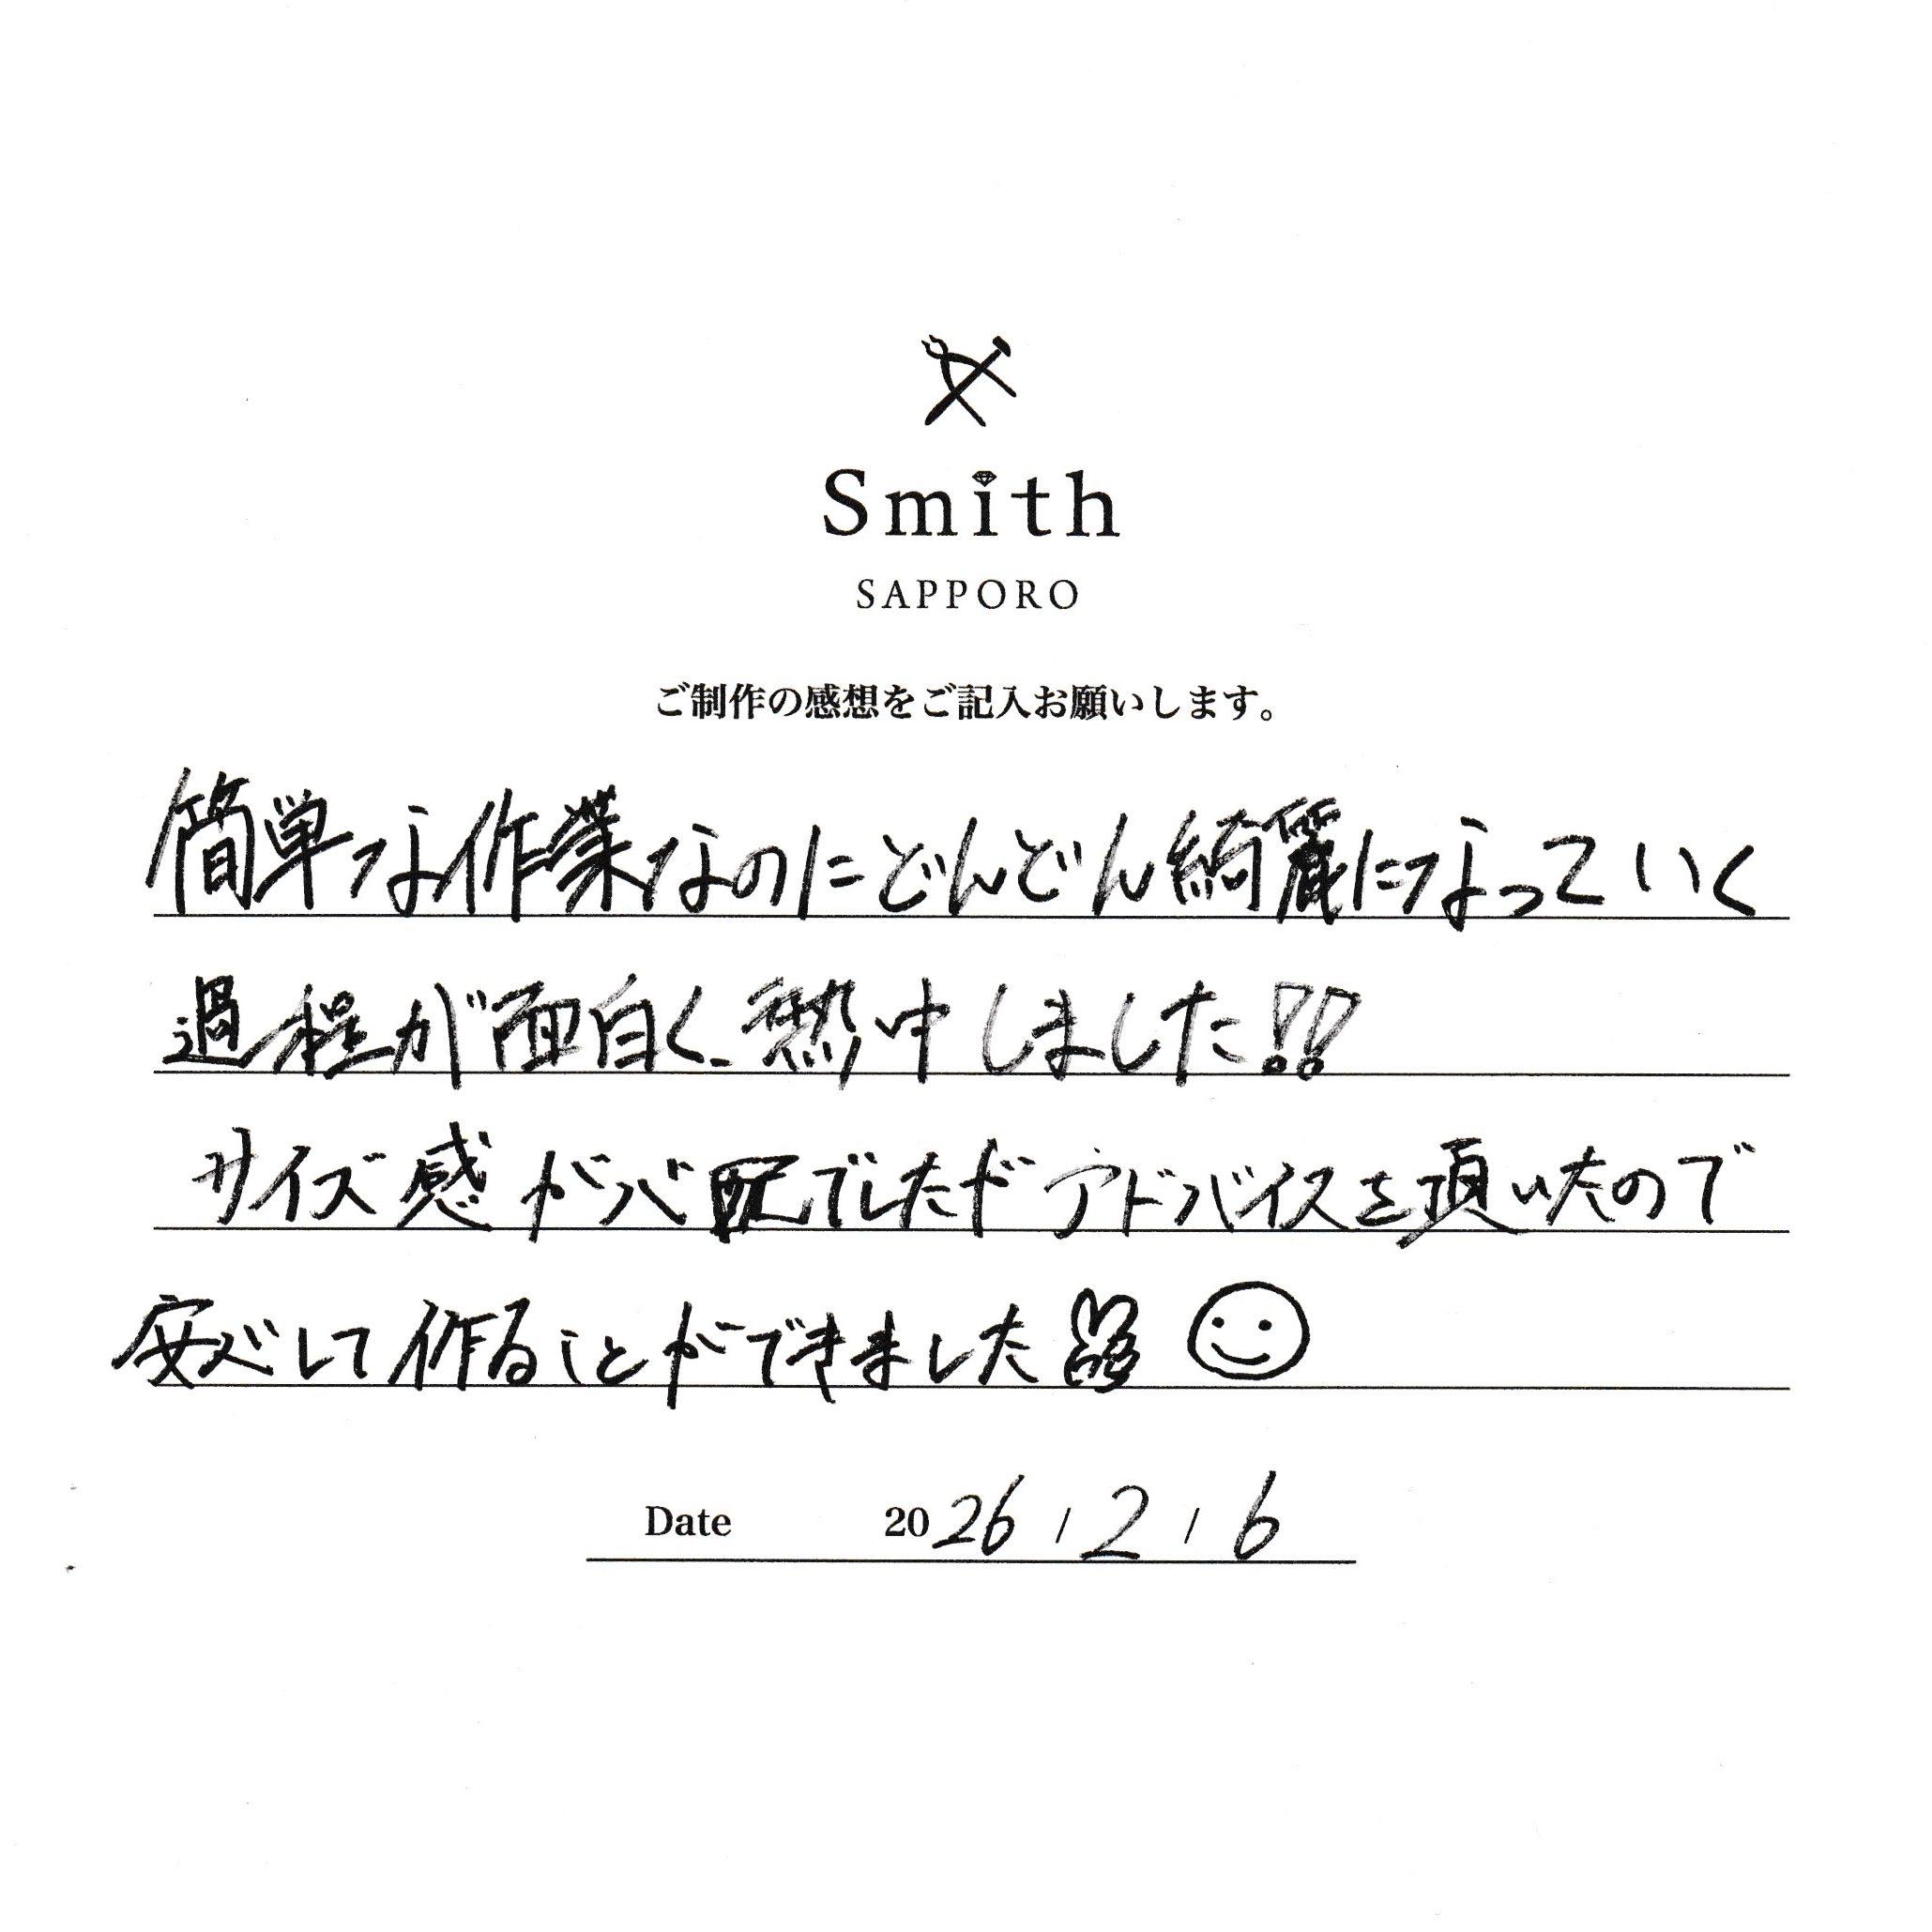 Smith
SAPPORO
ご制作の感想をご記入お願いします。
簡単な作業なのにどんどん綺麗になっていく
過程が面白く、熱中しました!!
サイズ感が心配でしたがアドバイスを頂いたので
安心して作ることができました
Date 2026/2/6